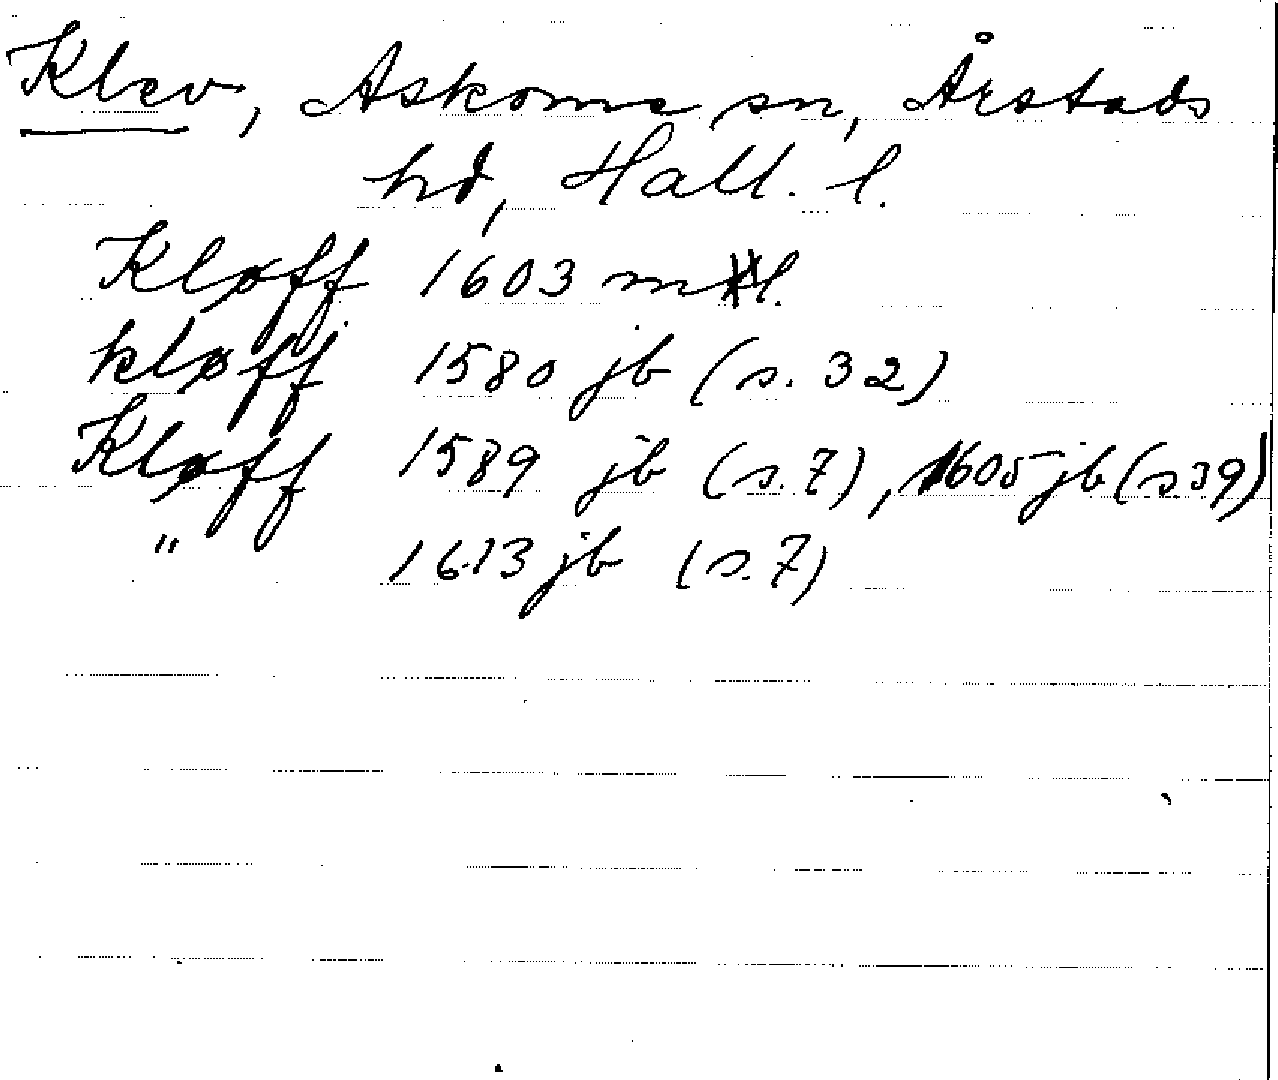 Klev, Askome sn, Årstads
hd, Hall. l.
Kløff 1603 mtl.
kløff 1580 jb (s. 32)
Kløff 1589 jb (s. 7), 1605 jb (s 39)
" 1613 jb (s. 7)